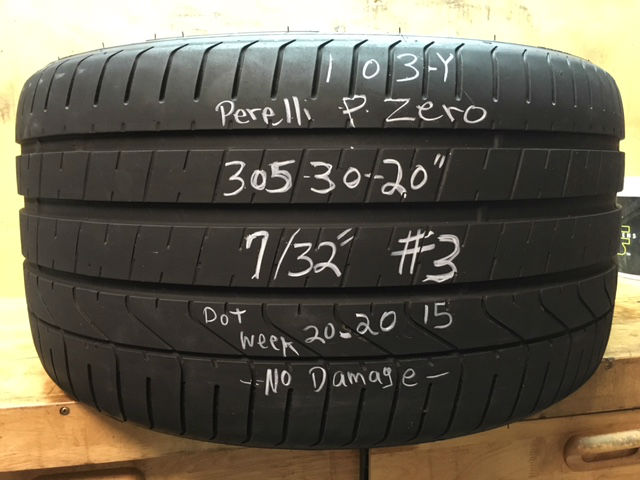 103-Y
Perelli P. Zero
305-30-20"
7/32" #3
DOT
Week 20-2015
-No Damage-